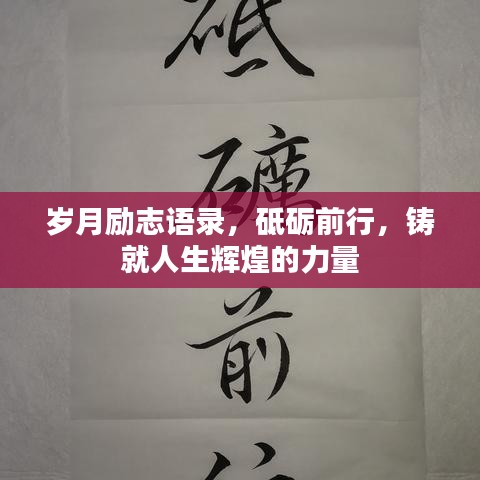 砥
礪
岁月励志语录，砥砺前行，铸
就人生辉煌的力量
前
行